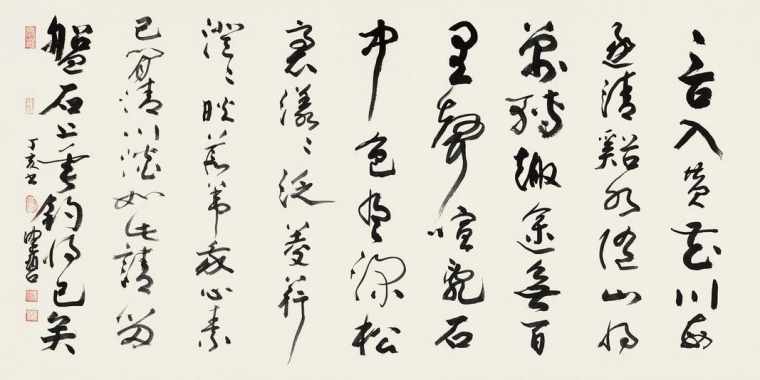 言入黄花川每
逐清谿水隨山将
萬轉趣途無百
里聲喧亂石
中色静深松
裏漾〻泛菱荇
澄〻映葭葦我心素
已閒清川澹如此請留
盤石上垂釣将已矣
丁亥